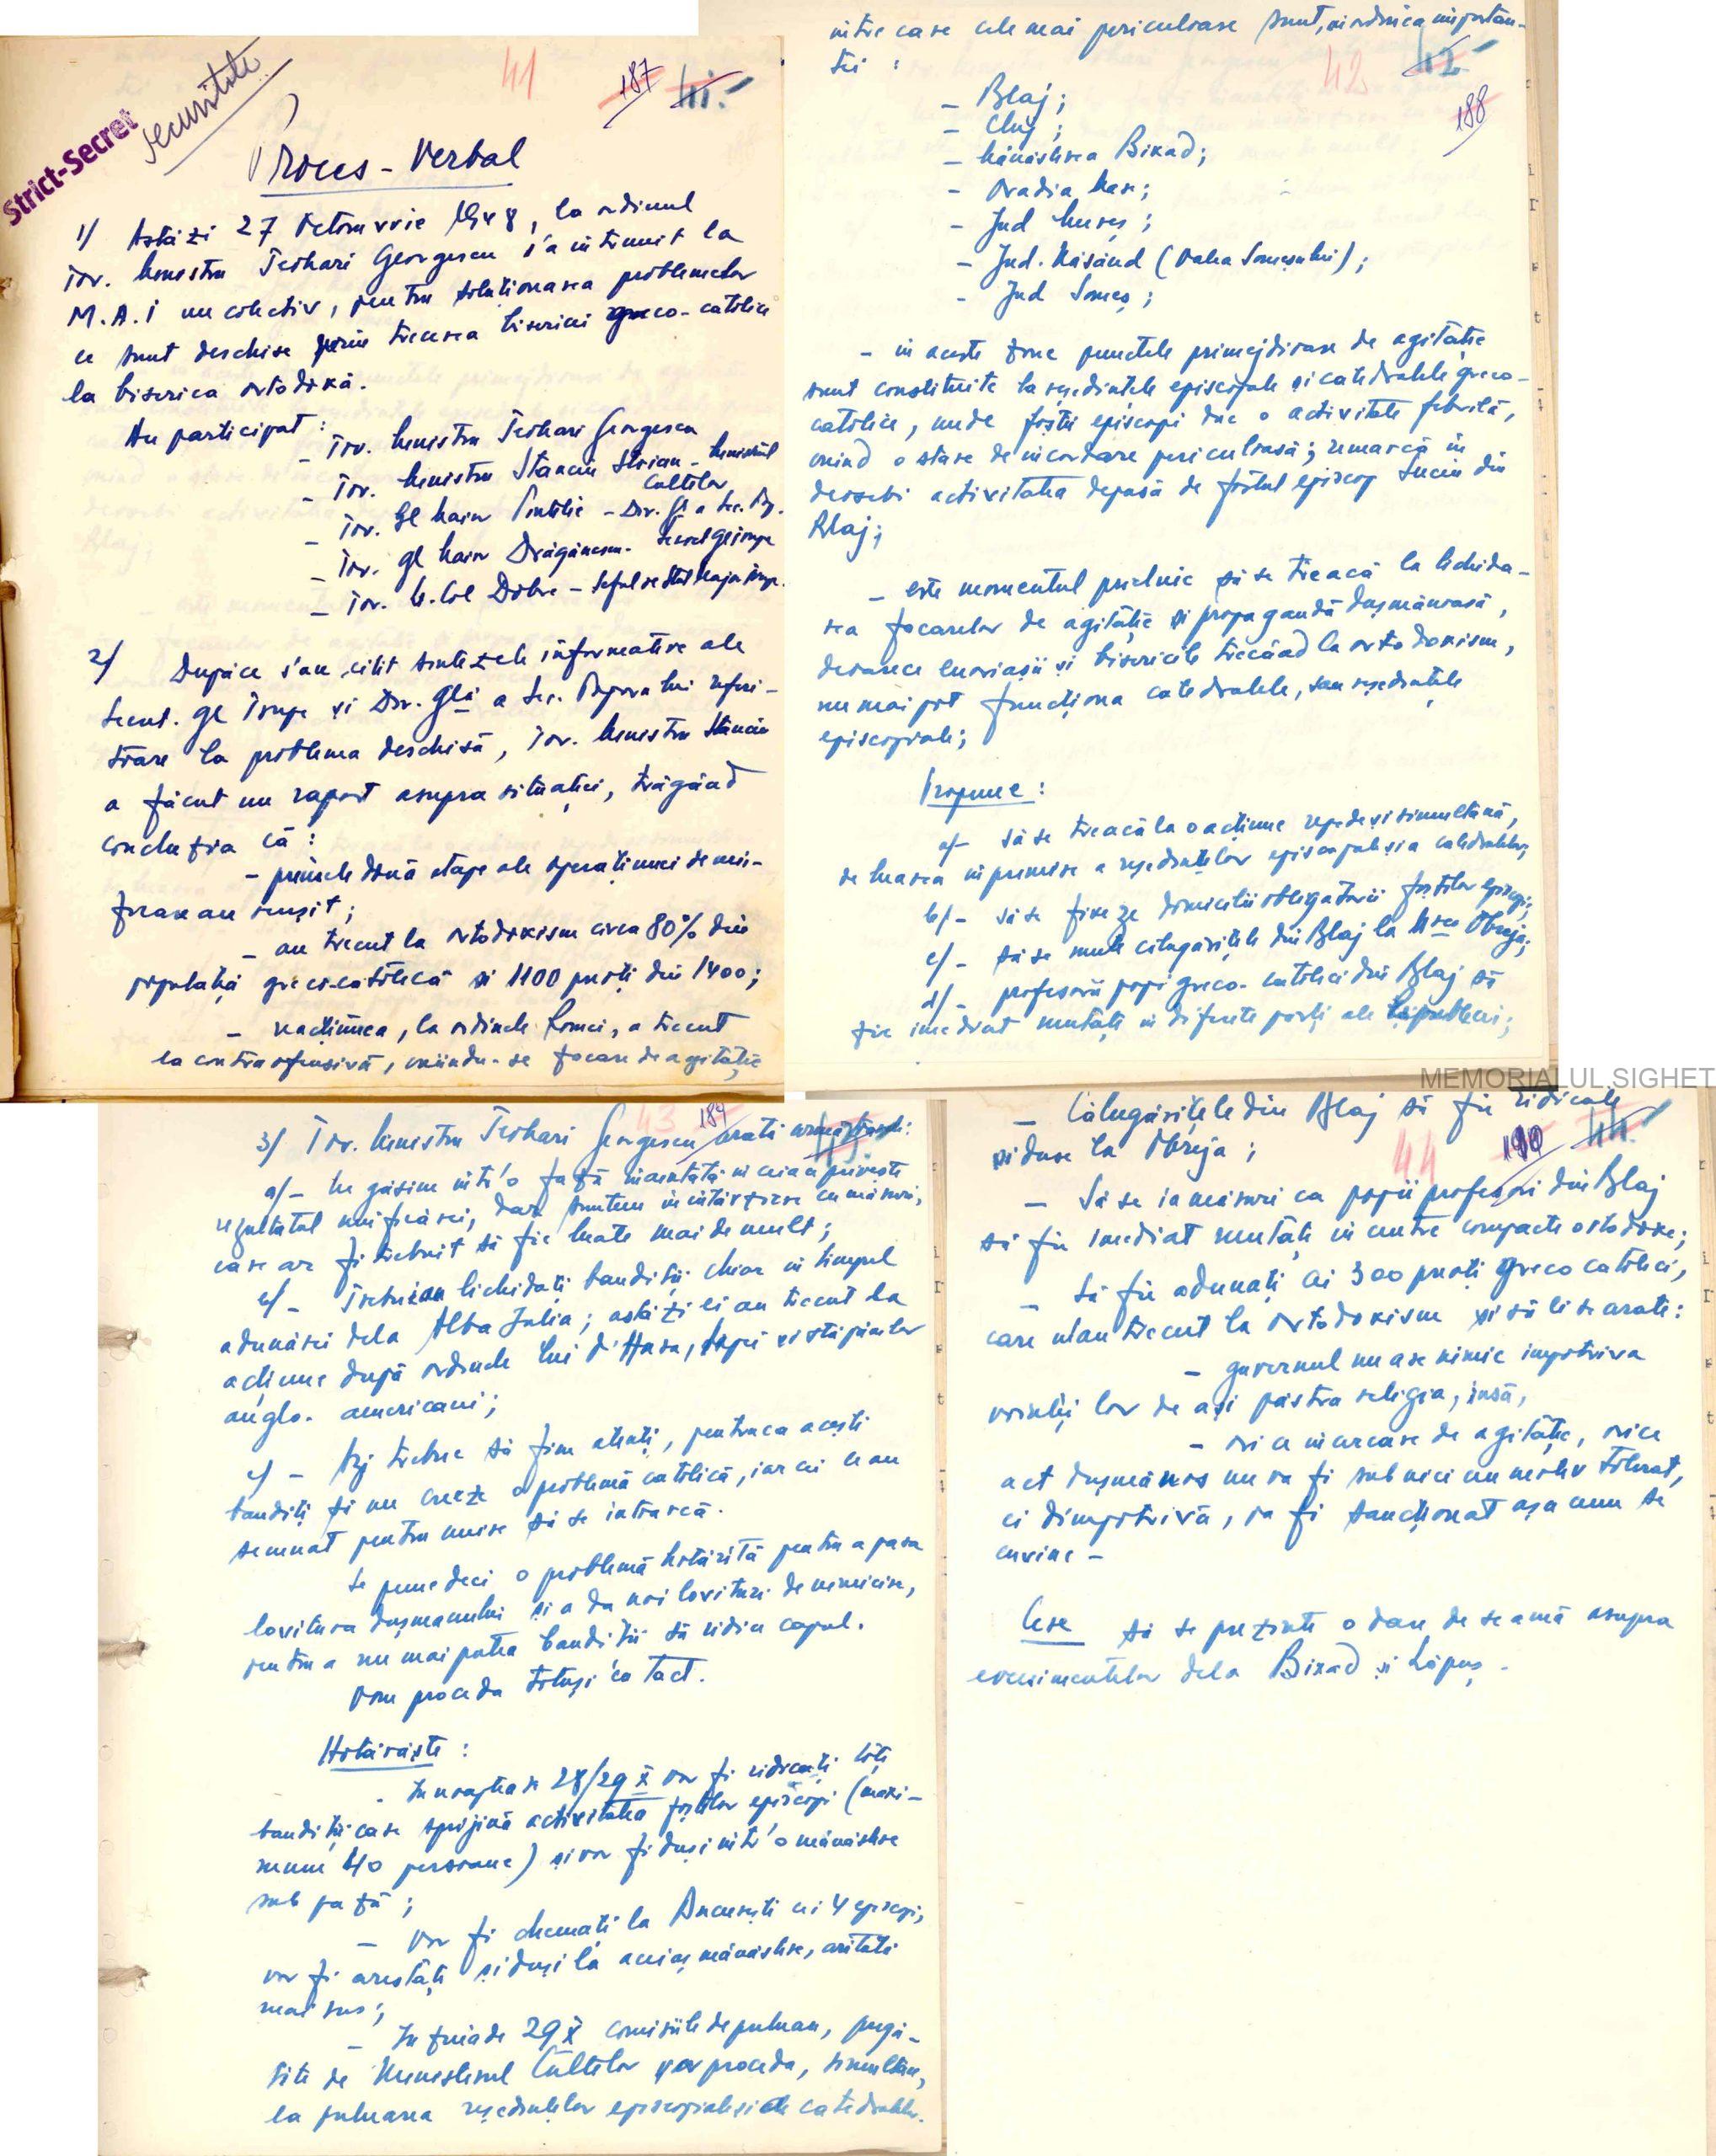 Strict-Secret
securitate
41
187
41.
Proces-Verbal
1/ Astăzi 27 Octomvrie 1948, la ordinul
Tov. Ministru Teohari Georgescu s'a întrunit la
M.A.I un colectiv, pentru soluționarea problemelor
ce sunt deschise prin trecerea bisericii greco-catolice
la biserica ortodoxă.
Au participat:
– Tov. Ministru Teohari Georgescu
– Tov. Ministru Stanciu Stoian – Ministerul
Cultelor
– Tov. Gl Maior Pintilie – Dir. Gl a Sec. Pop.
– Tov. Gl Maior Drăgănescu
– Tov. Lt. Col Dobre – Șeful Stat Major
2/ Dupăce s'au citit sintezele informative ale
Gl și Dir. Glă a Sec. Poporului referi-
toare la problema deschisă, Tov. Ministru Stanciu
a făcut un raport asupra situației, trăgând
concluzia că:
– primele două etape ale operațiunei de uni-
ficare au reușit;
– au trecut la ortodoxism circa 80% din
populația greco-catolică și 1100 preoți din 1400;
– reacțiunea, la ordinele Romei, a trecut
la contraofensivă, creindu-se focare de agitație
între care cele mai periculoase sunt, în ordinea importan-
ței:
42
42
188
– Blaj;
– Cluj;
– Mânăstirea Bixad;
– Oradia Mare;
– Jud Mureș;
– Jud. Năsăud (Valea Someșului);
– Jud Someș;
– în aceste zone punctele primejdioase de agitație
sunt constituite la reședințele episcopale și catedralele greco-
catolice, unde foștii episcopi duc o activitate febrilă,
creind o stare de încordare periculoasă; remarcă în
deosebi activitatea depusă de fostul episcop Suciu din
Blaj;
– este momentul prielnic să se treacă la lichida-
rea focarelor de agitație și propagandă dușmănoasă,
deoarece enoriașii și bisericile trecând la ortodoxism,
nu mai pot funcționa catedralele, sau reședințele
episcopale;
Propune:
a/– să se treacă la o acțiune repede și simultană,
de luarea în primire a reședințelor episcopale și a catedralelor;
b/– să se fixeze domicilii obligatorii foștilor episcopi;
c/– să se mute călugărițele din Blaj la M-rea Obreja;
d/– profesorii popi greco-catolici din Blaj să
fie imediat mutați în diferite părți ale Republicii;
MEMORIALUL SIGHET
43
189
3/ Tov. Ministru Teohari Georgescu arată următoarele:
a/– Ne găsim într'o fază înaintată în ceiace privește
rezultatul unificărei, dar suntem în întârziere cu măsuri,
care ar fi trebuit să fie luate mai de mult;
b/– Trebuiau lichidați bandiții chiar în timpul
adunărei dela Alba Julia; astăzi ei au trecut la
acțiune după ordinele lui O'Hara, Papii și stăpânilor
anglo-americani;
c/– Azi trebue să fim atenți, pentruca acești
bandiți să nu creeze o problemă catolică, iar cei ce au
semnat pentru unire să se întoarcă.
Se pune deci o problemă hotărîtă pentru a para
lovitura dușmanului și a da noi lovituri de nimicire,
pentru a nu mai putea bandiții să ridice capul.
Vom proceda totuși cu tact.
Hotărăște:
– In noaptea de 28/29 X vor fi ridicați toți
bandiții care sprijină activitatea foștilor episcopi (maxi-
mum 40 persoane) și vor fi duși într'o mânăstire
sub pază;
– Vor fi chemați la București cei 4 episcopi,
vor fi arestați și duși la aceiaș mânăstire, arătată
mai sus;
– In ziua de 29 X comisiile de preluare, pregă-
tite de Ministerul Cultelor vor proceda, simultan,
la preluarea reședințelor episcopale și ale catedralelor.
– Călugărițele din Blaj să fie ridicate
și duse la Obreja;
44
190
44.
– Să se ia măsuri ca popii profesori din Blaj
să fie imediat mutați în centre compacte ortodoxe;
– Să fie adunați cei 300 preoți greco catolici,
care n'au trecut la ortodoxism și să li se arate:
– guvernul nu are nimic împotriva
voinții lor de a-și păstra religia, însă,
– orice încercare de agitație, orice
act dușmănos nu va fi sub nici un motiv tolerat,
ci dimpotrivă, va fi sancționat așa cum se
cuvine –
Cere să se prezinte o dare de seamă asupra
evenimentelor dela Bixad și Lăpuș.